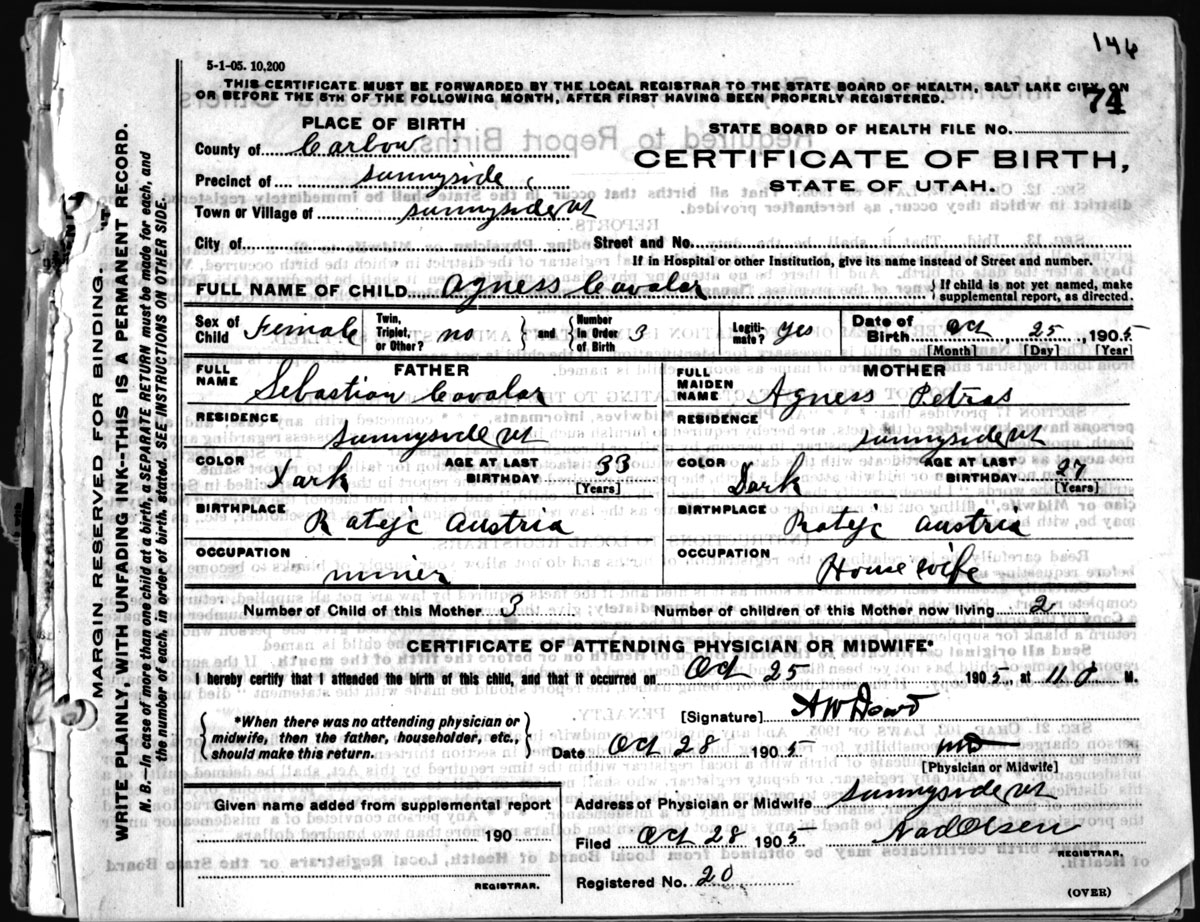 146
5-1-05. 10,200
THIS CERTIFICATE MUST BE FORWARDED BY THE LOCAL REGISTRAR TO THE STATE BOARD OF HEALTH, SALT LAKE CITY, ON
OR BEFORE THE 5TH OF THE FOLLOWING MONTH, AFTER FIRST HAVING BEEN PROPERLY REGISTERED.
74
PLACE OF BIRTH
STATE BOARD OF HEALTH FILE NO.
County of Carbow
CERTIFICATE OF BIRTH,
Precinct of Sunnyside
STATE OF UTAH.
Town or Village of Sunnyside ut
City of Street and No.
If in Hospital or other Institution, give its name instead of Street and number.
FULL NAME OF CHILD Agness Cavalar { If child is not yet named, make
supplemental report, as directed.
Sex of Child Female Twin, Triplet, or Other? no } and { Number in Order of Birth 3 Legiti-mate? yes Date of Birth Oct 25, 1905
[Month] [Day] [Year]
FATHER
FULL NAME Sebastian Cavalar
RESIDENCE
Sunnyside ut
COLOR Dark AGE AT LAST BIRTHDAY 33
[Years]
BIRTHPLACE Ratejc Austria
OCCUPATION
miner
MOTHER
FULL MAIDEN NAME Agness Petras
RESIDENCE
Sunnyside ut
COLOR Dark AGE AT LAST BIRTHDAY 27
[Years]
BIRTHPLACE Ratejc Austria
OCCUPATION
Home wife
Number of Child of this Mother 3 Number of children of this Mother now living 2
CERTIFICATE OF ATTENDING PHYSICIAN OR MIDWIFE*
I hereby certify that I attended the birth of this child, and that it occurred on Oct 25 1905, at 11 M.
{ *When there was no attending physician or
midwife, then the father, householder, etc.,
should make this return. }
[Signature] A W Dowd
Date Oct 28 1905 MD
[Physician or Midwife]
Given name added from supplemental report
190
REGISTRAR.
Address of Physician or Midwife Sunnyside ut
Filed Oct 28 1905 Olsen
REGISTRAR.
Registered No. 20
(OVER)
MARGIN RESERVED FOR BINDING.
WRITE PLAINLY WITH UNFADING INK--THIS IS A PERMANENT RECORD.
N. B.—In case of more than one child at a birth, a SEPARATE RETURN must be made for each, and
the number of each, in order of birth, stated. SEE INSTRUCTIONS ON OTHER SIDE.